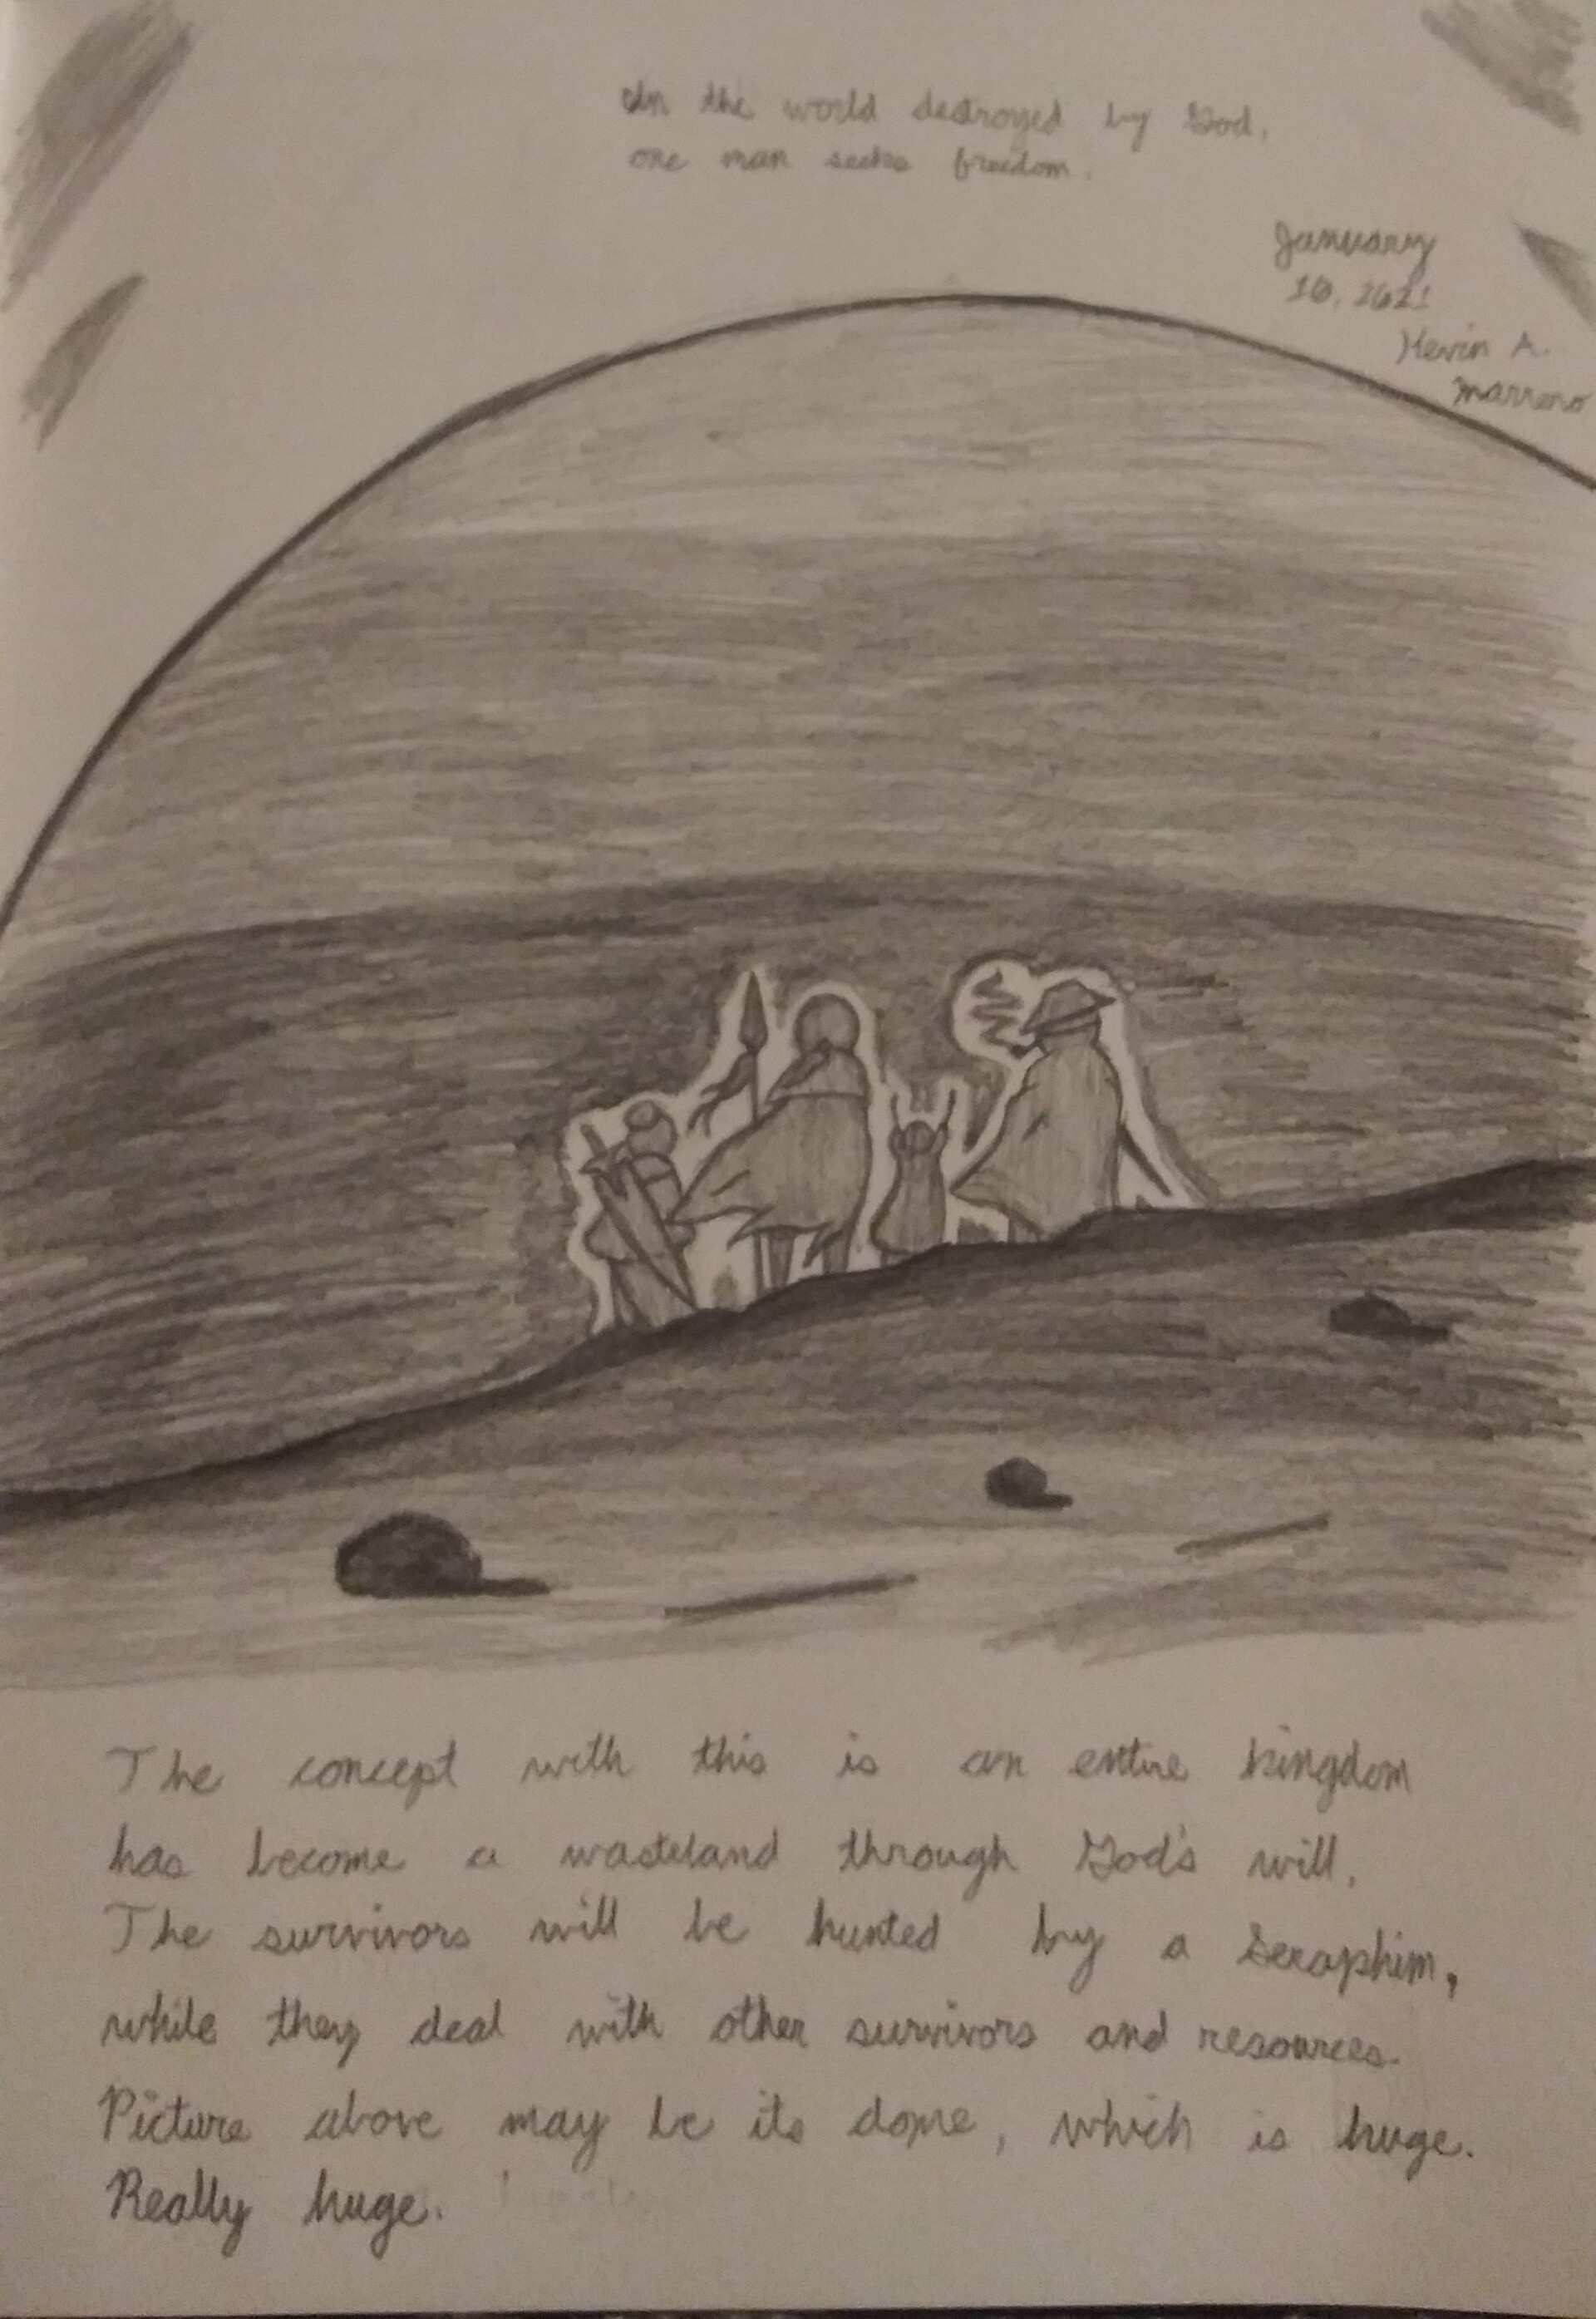 In the world destroyed by God,
one man seeks freedom.
January
16, 2021
Kevin A.
Marrero
The concept with this is an entire kingdom
has become a wasteland through God's will.
The survivors will be hunted by a Seraphim,
while they deal with other survivors and resources.
Picture above may be its dome, which is huge.
Really huge.